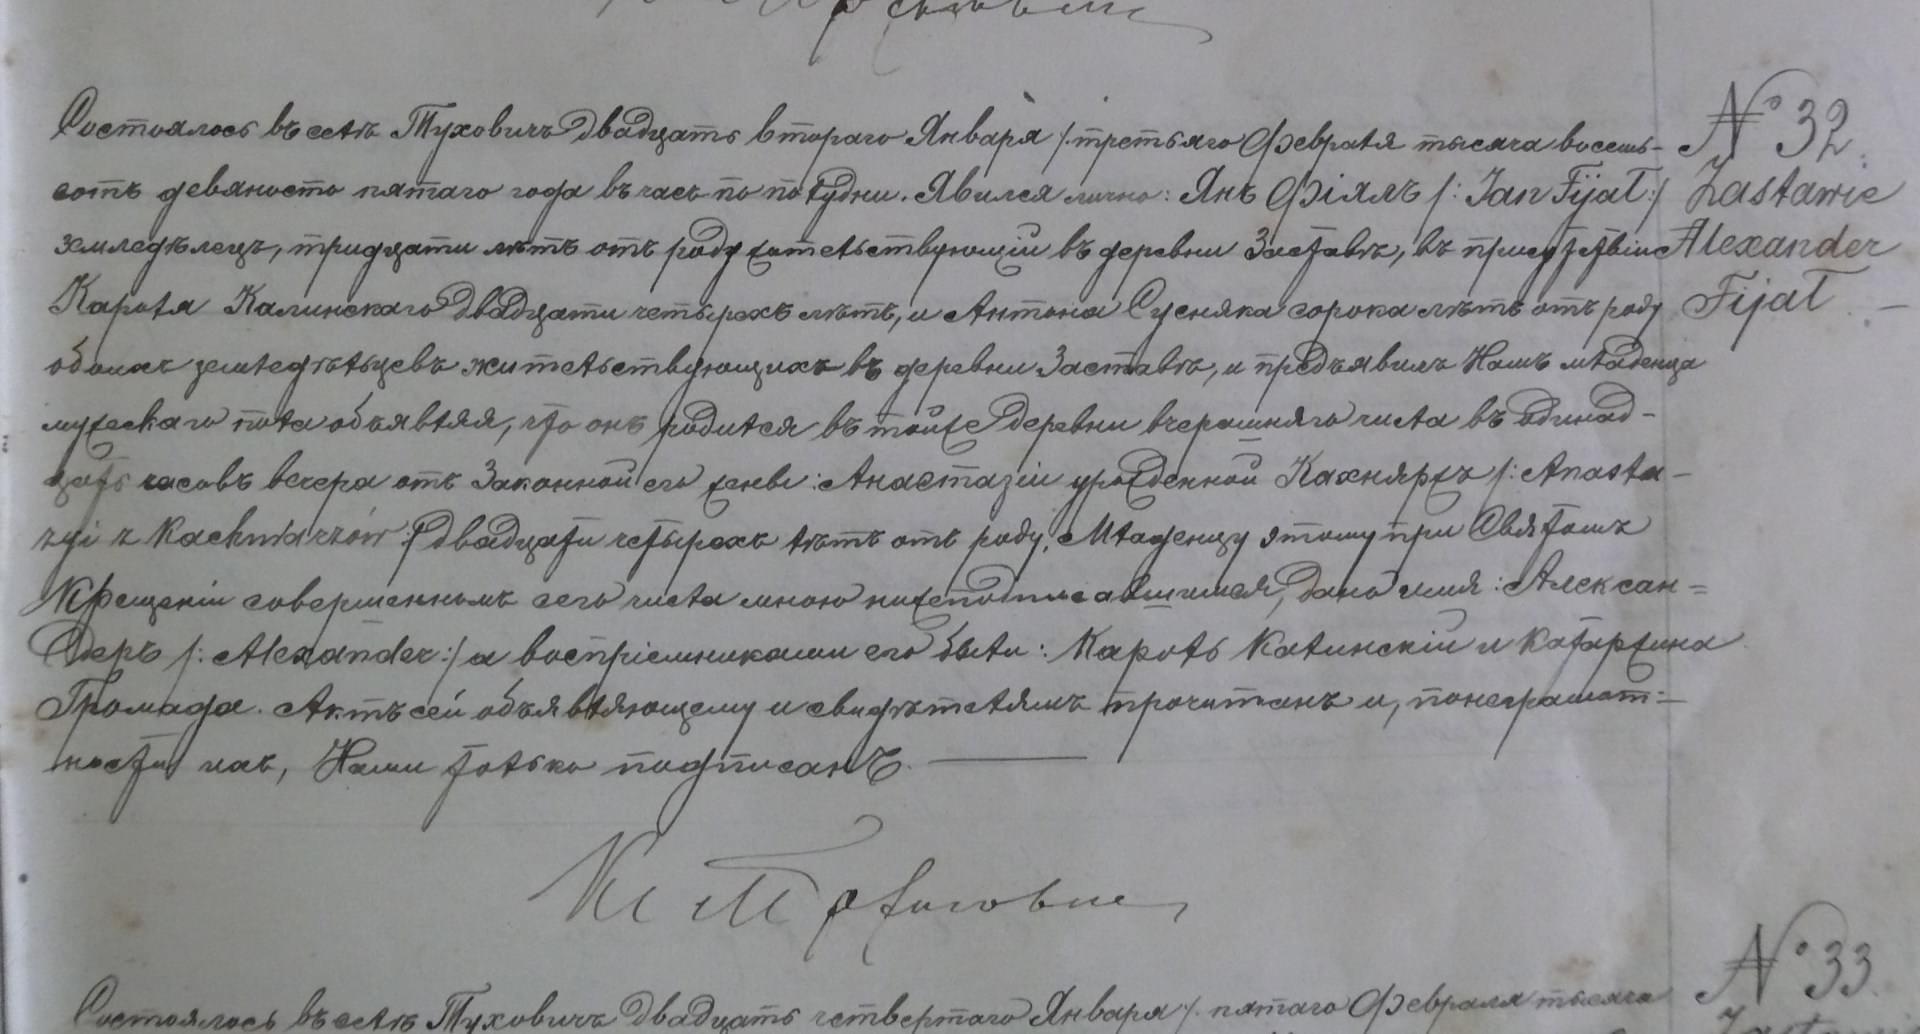 Состоялось въ селѣ Туховичъ двадцать втораго Января /: третьяго Февраля тысяча восемь-
сотъ девяносто пятаго года въ часъ по полудни. Явился лично: Янъ Фіялъ /: Jan Fijał :/
земледѣлецъ, тридцати лѣтъ отъ роду жительствующій въ деревни Заставѣ, въ присутствіи
Кароля Калинскаго двадцати четырехъ лѣтъ, и Антона Сусняка сорока лѣтъ отъ роду
обоихъ земледѣльцевъ жительствующихъ въ деревни Заставѣ, и предъявилъ Намъ младенца
мужескаго пола объявляя, что онъ родился въ тойже деревни вчерашняго числа въ одинад-
цать часовъ вечера отъ Законной его жены: Анастазіи урожденной Кахняржъ /: Anasta-
zyi z Kachniarzów :/ двадцати четырехъ лѣтъ отъ роду. Младенцу этому при Святомъ
Крещеніи совершенномъ сего числа мною нижеподписавшимся, дано имя: Алексан=
деръ /: Alexander :/ а воспріемниками его были: Кароль Калинскій и Катаржина
Громада. Актъ сей объявляющему и свидѣтелямъ прочитанъ и, понеграмот=
ности ихъ, Нами только подписанъ.
№ 32
Zastawie
Alexander
Fijał
Состоялось въ селѣ Туховичъ двадцать четвертаго Января /: пятаго Февраля тысяча
№ 33